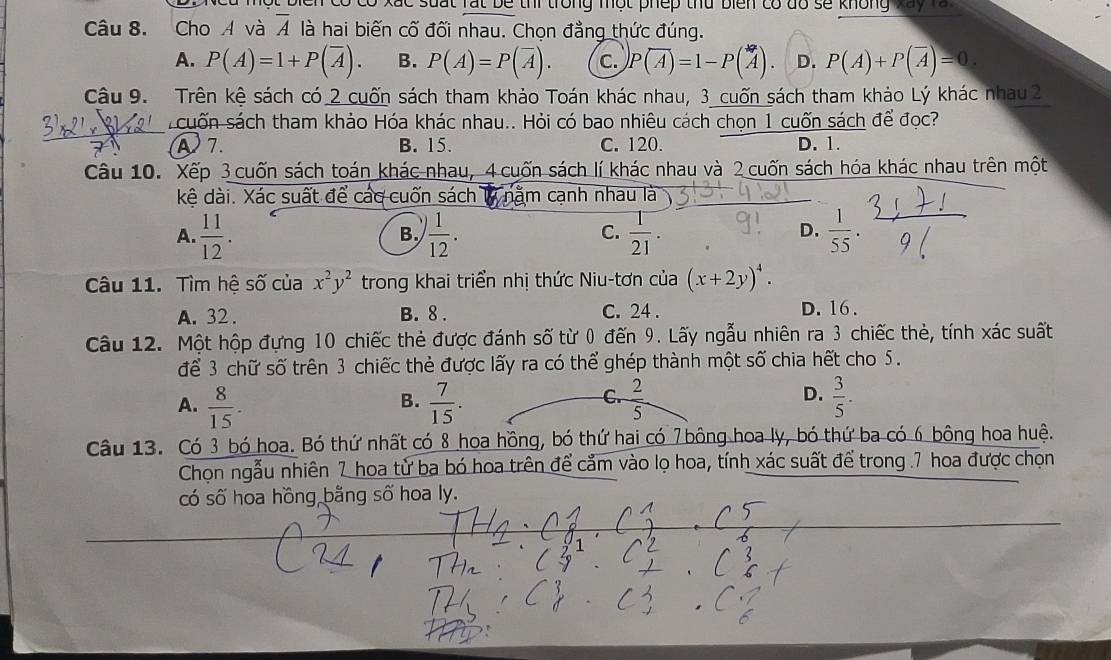 một biến cố có xác suất rất bé thì trong một phép thử biến cố đó sẽ không xảy ra.
Câu 8. Cho A và A̅ là hai biến cố đối nhau. Chọn đẳng thức đúng.
A. P(A)=1+P(A̅). B. P(A)=P(A̅). C. P(A̅)=1-P(A). D. P(A)+P(A̅)=0.
Câu 9. Trên kệ sách có 2 cuốn sách tham khảo Toán khác nhau, 3 cuốn sách tham khảo Lý khác nhau 2
cuốn sách tham khảo Hóa khác nhau.. Hỏi có bao nhiêu cách chọn 1 cuốn sách để đọc?
A. 7. B. 15. C. 120. D. 1.
Câu 10. Xếp 3 cuốn sách toán khác nhau, 4 cuốn sách lí khác nhau và 2 cuốn sách hóa khác nhau trên một
kệ dài. Xác suất để các cuốn sách nằm cạnh nhau là 3!3!4!2!
A. 11/12. B. 1/12. C. 1/21. 9! D. 1/55. 3!7!/9!
Câu 11. Tìm hệ số của x²y² trong khai triển nhị thức Niu-tơn của (x+2y)⁴.
A. 32. B. 8. C. 24. D. 16.
Câu 12. Một hộp đựng 10 chiếc thẻ được đánh số từ 0 đến 9. Lấy ngẫu nhiên ra 3 chiếc thẻ, tính xác suất
để 3 chữ số trên 3 chiếc thẻ được lấy ra có thể ghép thành một số chia hết cho 5.
A. 8/15. B. 7/15. C. 2/5 D. 3/5.
Câu 13. Có 3 bó hoa. Bó thứ nhất có 8 hoa hồng, bó thứ hai có 7 bông hoa ly, bó thứ ba có 6 bông hoa huệ.
Chọn ngẫu nhiên 7 hoa từ ba bó hoa trên để cắm vào lọ hoa, tính xác suất để trong 7 hoa được chọn
có số hoa hồng bằng số hoa ly.
C⁷₂₁, TH1: C¹₈ . C¹₇ . C⁵₆ +
1
TH2: C²₈ . C²₇ . C³₆ +
TH3: C³₈ . C³₇ . C¹₆